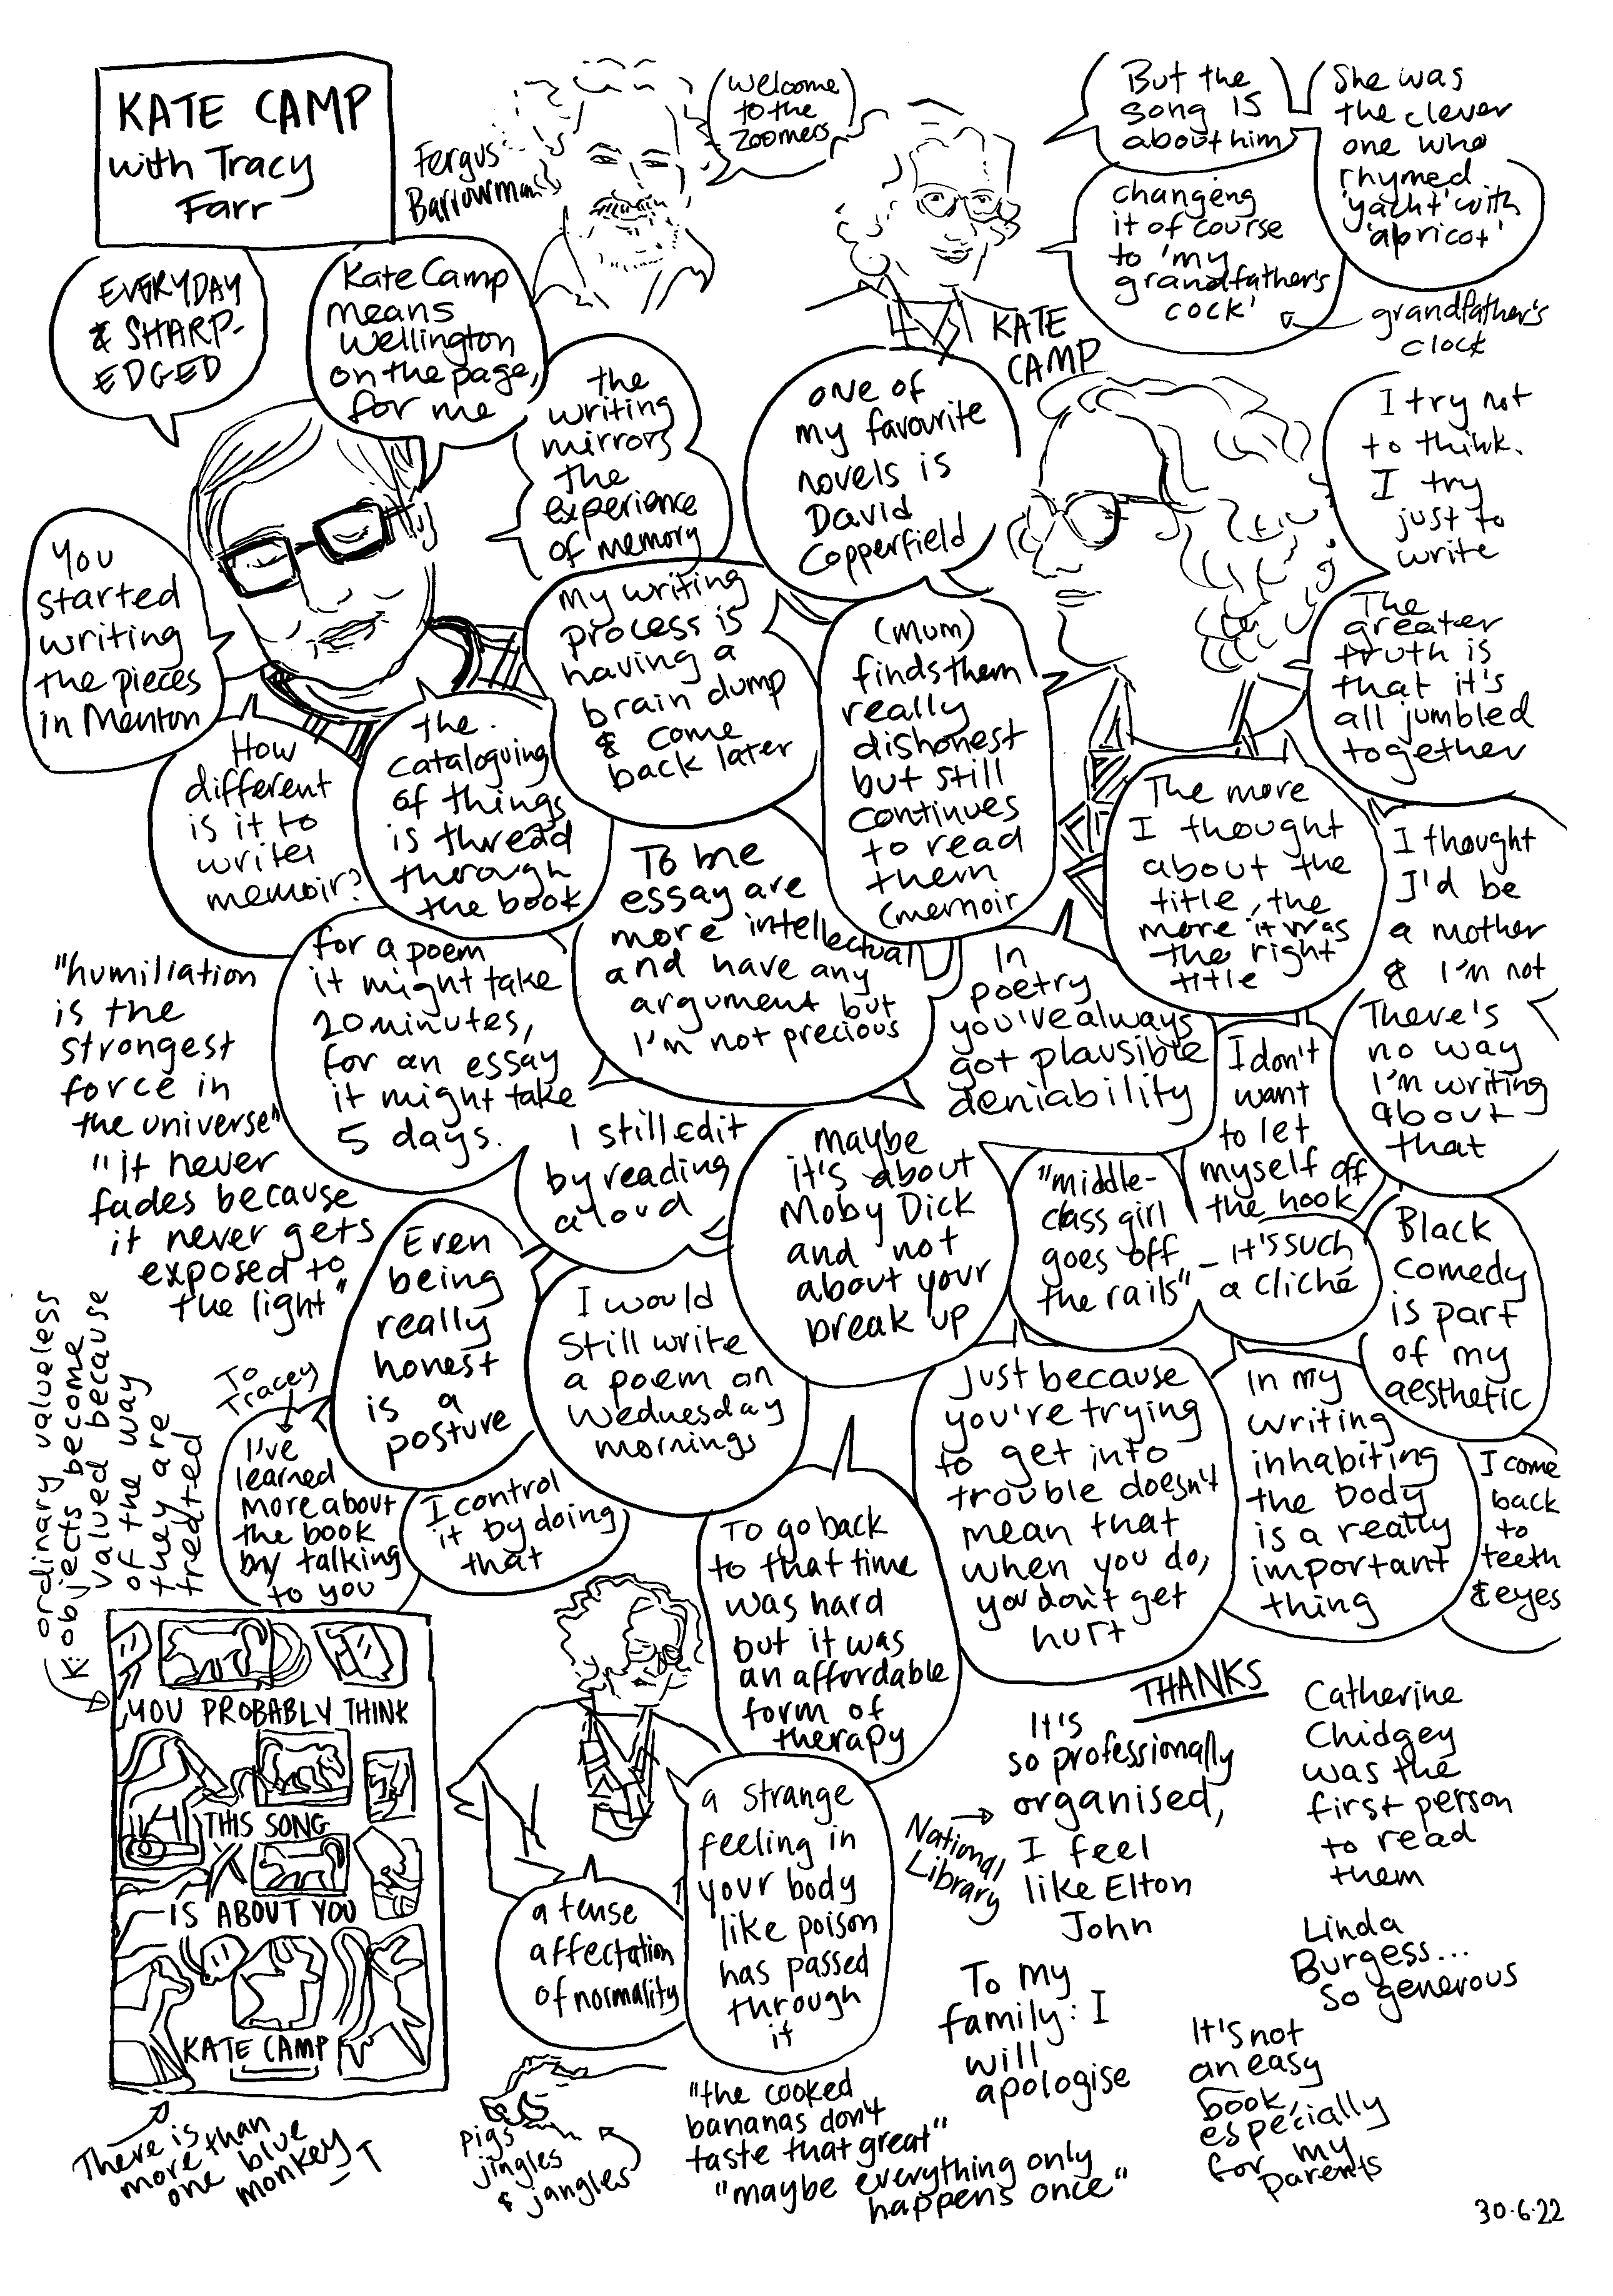 KATE CAMP
with Tracy
Farr
Fergus
Barrowman
(Welcome
to the
Zoomers)
But the
song is
about him
She was
the clever
one who
rhymed
'yacht' with
'apricot'
changing
it of course
to 'my
grandfather's
cock'
grandfather's
clock
KATE
CAMP
EVERYDAY
& SHARP-
EDGED
Kate Camp
means
Wellington
on the page,
for me
the
writing
mirrors
the
experience
of memory
one of
my favourite
novels is
David
Copperfield
I try not
to think.
I try
just to
write
You
started
writing
the pieces
in Menton
My writing
process is
having a
brain dump
& come
back later
(Mum)
finds them
really
dishonest
but still
continues
to read
them
(memoir
The
greater
truth is
that it's
all jumbled
together
How
different
is it to
writer
memoir?
the
cataloguing
of things
is thread
through
the book
To me
essay are
more intellectual
and have any
argument but
I'm not precious
The more
I thought
about the
title, the
more it was
the right
title
I thought
I'd be
a mother
& I'm not
"humiliation
is the
strongest
force in
the universe"
"it never
fades because
it never gets
exposed to
the light"
for a poem
it might take
20 minutes,
for an essay
it might take
5 days.
In
poetry
you've always
got plausible
deniability
I don't
want
to let
myself off
the hook
There's
no way
I'm writing
about
that
I still edit
by reading
aloud
maybe
it's about
Moby Dick
and not
about your
break up
"middle-
class girl
goes off
the rails"
- it's such
a cliché
Black
comedy
is part
of my
aesthetic
Even
being
really
honest
is a
posture
I would
still write
a poem on
Wednesday
mornings
K: ordinary valueless
objects become
valued because
of the way
they are
treated
To
Tracey
I've
learned
more about
the book
by talking
to you
I control
it by doing
that
To go back
to that time
was hard
but it was
an affordable
form of
therapy
Just because
you're trying
to get into
trouble doesn't
mean that
when you do,
you don't get
hurt
In my
writing
inhabiting
the body
is a really
important
thing
I come
back
to
teeth
& eyes
YOU PROBABLY THINK
THIS SONG
IS ABOUT YOU
KATE CAMP
There is
more than
one blue
monkey
- T
a tense
affectation
of normality
a strange
feeling in
your body
like poison
has passed
through
it
Pigs
jingles
& jangles
"the cooked
bananas don't
taste that great"
"maybe everything only
happens once"
THANKS
National
Library
It's
so professionally
organised,
I feel
like Elton
John
Catherine
Chidgey
was the
first person
to read
them
Linda
Burgess...
so generous
To my
family: I
will
apologise
It's not
an easy
book,
especially
for my
parents
30.6.22